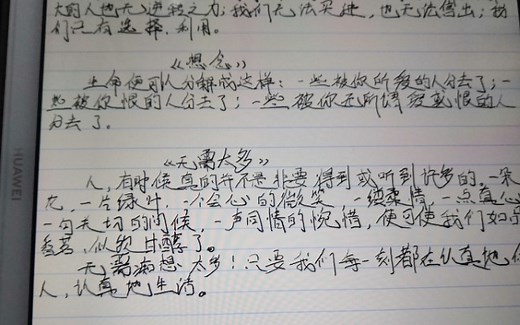 大的人也无逆转之力；我们无法买进，也无法售出；我
们只有选择，利用。
《想念》
生命便可以分解成这样：一些被你所爱的人分去了；一
些被你恨的人分去了；一些被你无所谓爱或恨的人
分去了。
《无需太多》
人，有时候真的并不是非要得到或听到许多的，一朵
花，一片绿叶，一个会心的微笑，一缕柔情，一点真心
一句关切的问候，一声同情的惋惜，便可使我们如
似饮甘醇了。
无需满想太多！只要我们每一刻都在认真地
人，认真地生活。
HUAWEI